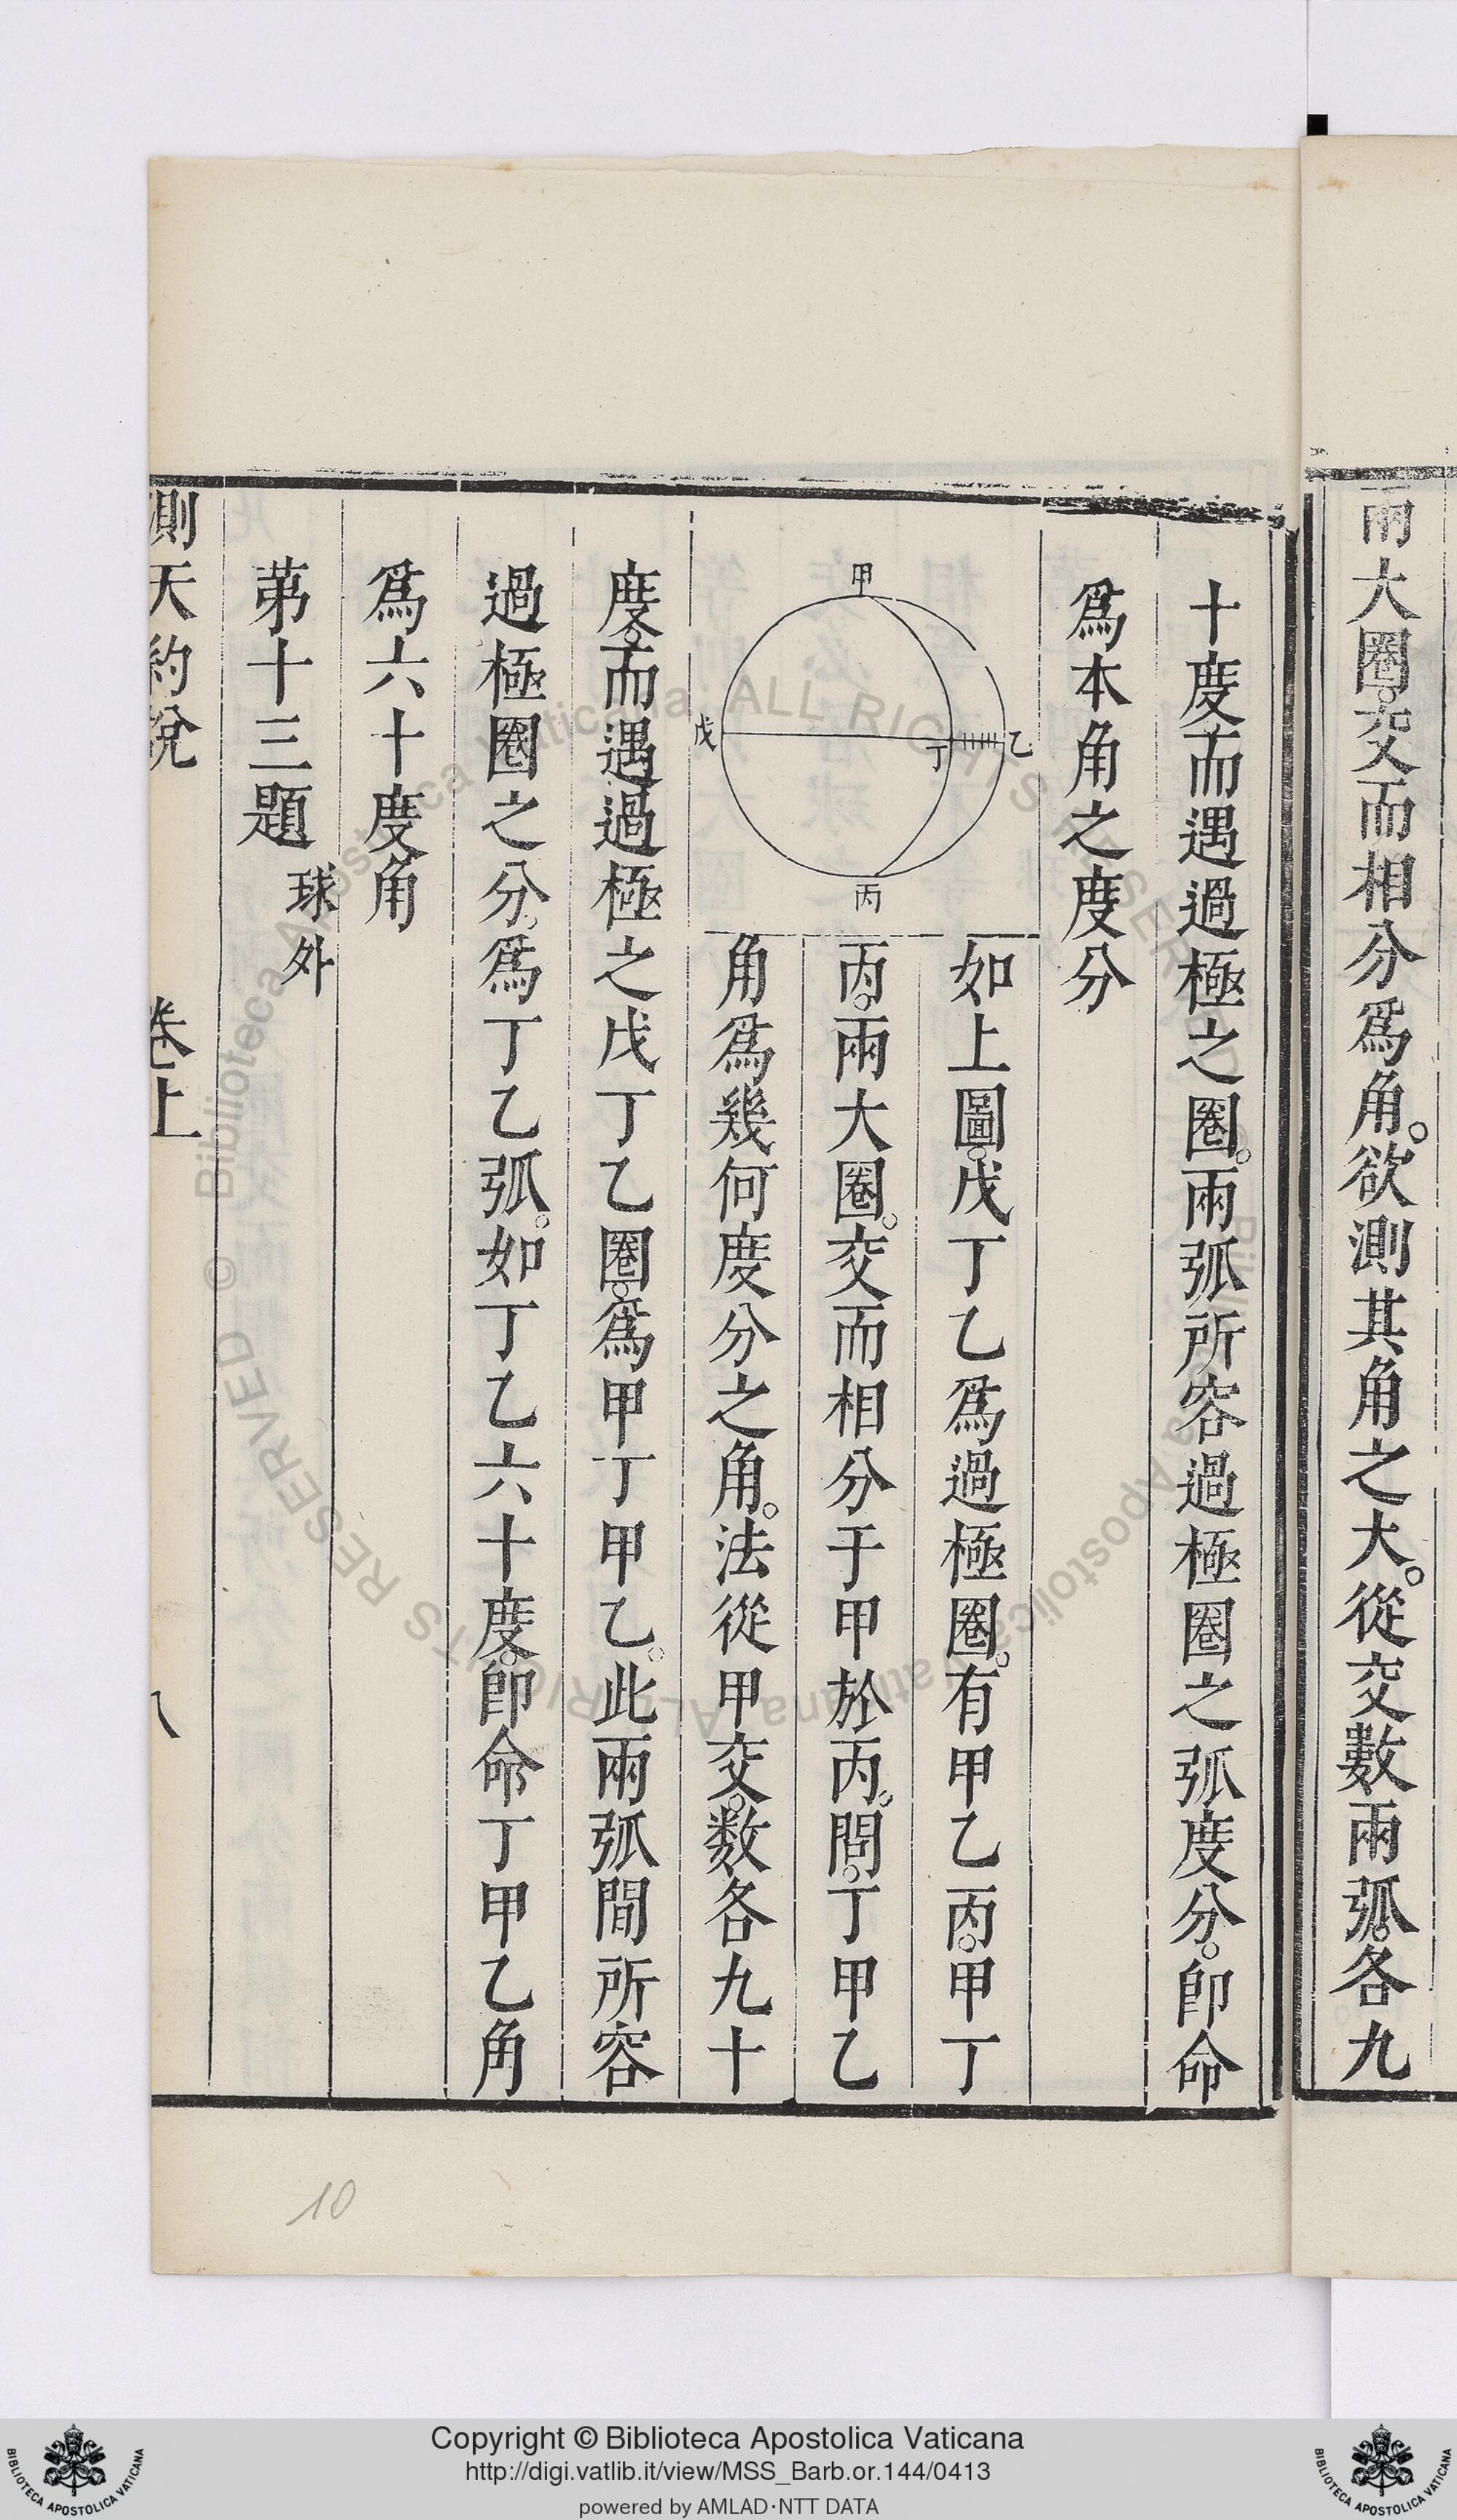 兩大圈。交而相分爲角。欲測其角之大。從交數兩弧。各九
十度而遇過極之圈。兩弧所容過極圈之弧度分。卽命
爲本角之度分
甲
乙
丁
戊
丙
如上圖。戊丁乙爲過極圈。有甲乙丙。甲丁
丙。兩大圈。交而相分于甲於丙。問。丁甲乙
角爲幾何度分之角。法從甲交。数各九十
度。而遇過極之戊丁乙圈。爲甲丁甲乙。此兩弧間所容
過極圈之分。爲丁乙弧。如丁乙六十度。卽命丁甲乙角
爲六十度角
第十三題 球外
測天約說 卷上 八
10
Copyright © Biblioteca Apostolica Vaticana
http://digi.vatlib.it/view/MSS_Barb.or.144/0413
powered by AMLAD·NTT DATA
BIBLIOTECA APOSTOLICA VATICANA
BIBLIOTECA APOSTOLICA VATICANA